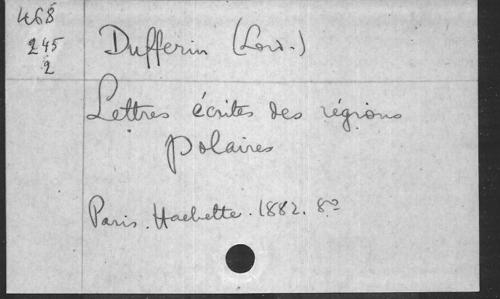 468
245
2
Dufferin (Lord.)
Lettres écrites des régions
polaires
Paris. Hachette. 1882. 8º